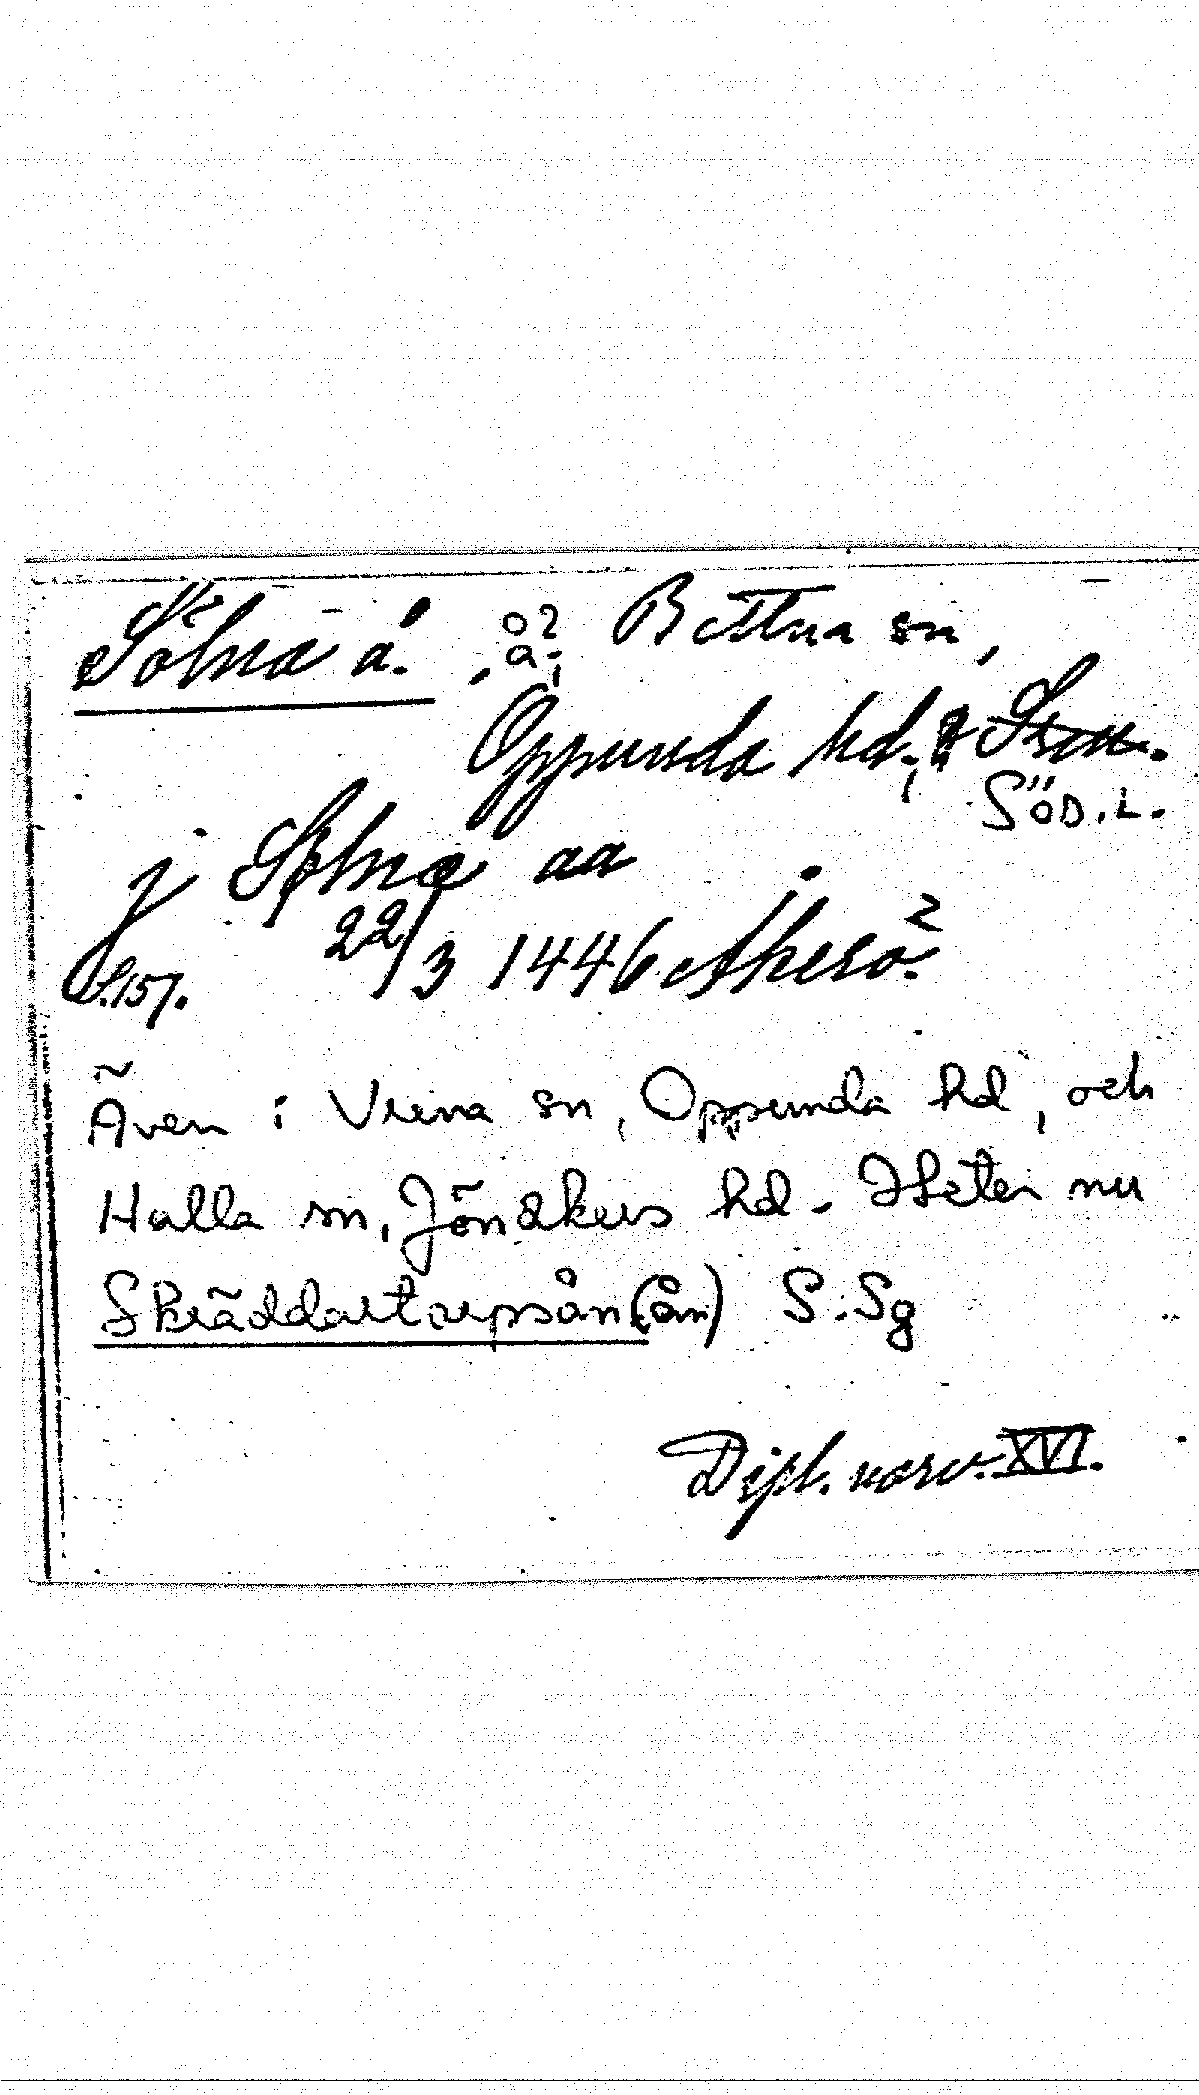 Sölnæ å. , å?, Bettna sn,
Oppunda hd.,
SÖD.L.
j Sølnæ aa
22/3 1446 Åkerö?
S.157.
Även i Vrena sn, Oppunda hd, och
Halla sn, Jönåkers hd. Heter nu
Skräddartorpsån (ån) S.Sg
Dipl. norv. XVI.